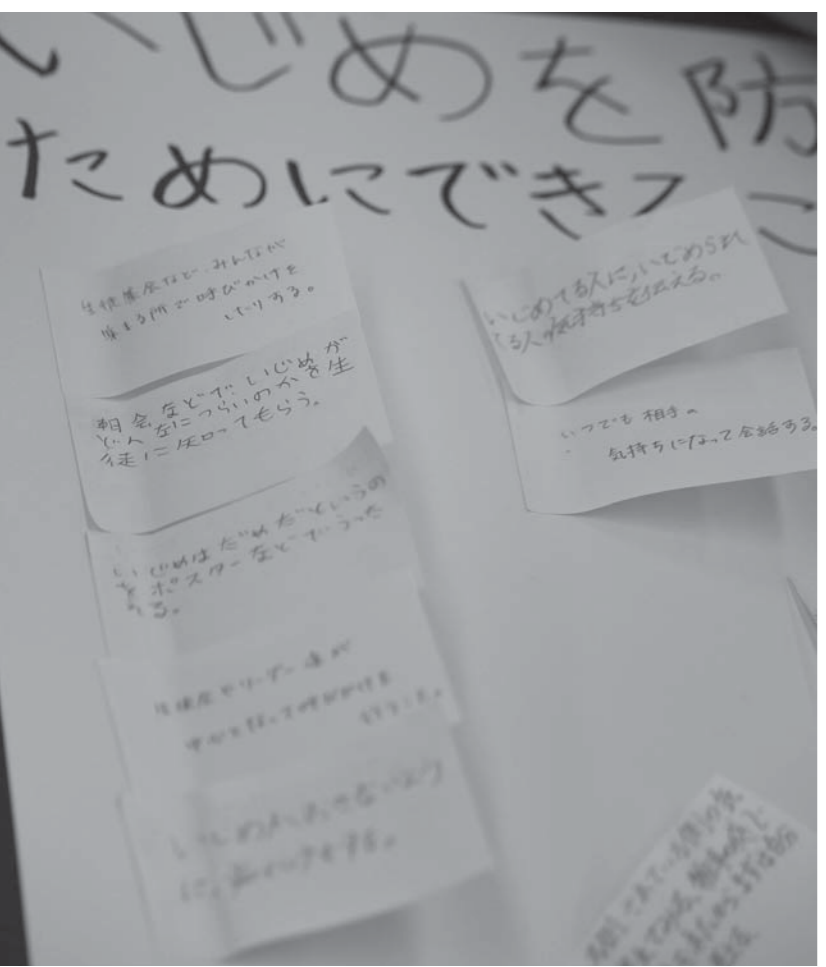 いじめを防
ためにできるこ
生徒集会など、みんなが
集まる所で呼びかけを
したりする。
朝会などで、いじめが
どんなにつらいのかを生
徒に知ってもらう。
いじめはだめだというの
をポスターなどでうった
える。
生徒会やリーダー達が
中心となって呼びかけを
行うこと。
いじめてる人に、いじめられ
てる人の気持ちを伝える。
いつでも相手の
気持ちになって会話する。